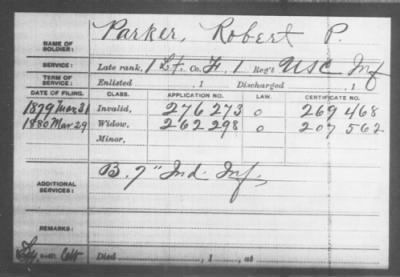 NAME OF SOLDIER: Parker, Robert P.
SERVICE: Late rank, 1 Lt. Co. F, 1 Reg't USC Inf
TERM OF SERVICE: Enlisted , 1 Discharged , 1
DATE OF FILING. CLASS. APPLICATION NO. LAW. CERTIFICATE NO.
1879 Mar 31 Invalid, 276 273 o 269 468
1880 Mar 29 Widow, 262 298 o 207 562
Minor,
ADDITIONAL SERVICES: B. 7" Ind. Inf.
REMARKS:
Died , 1 , at